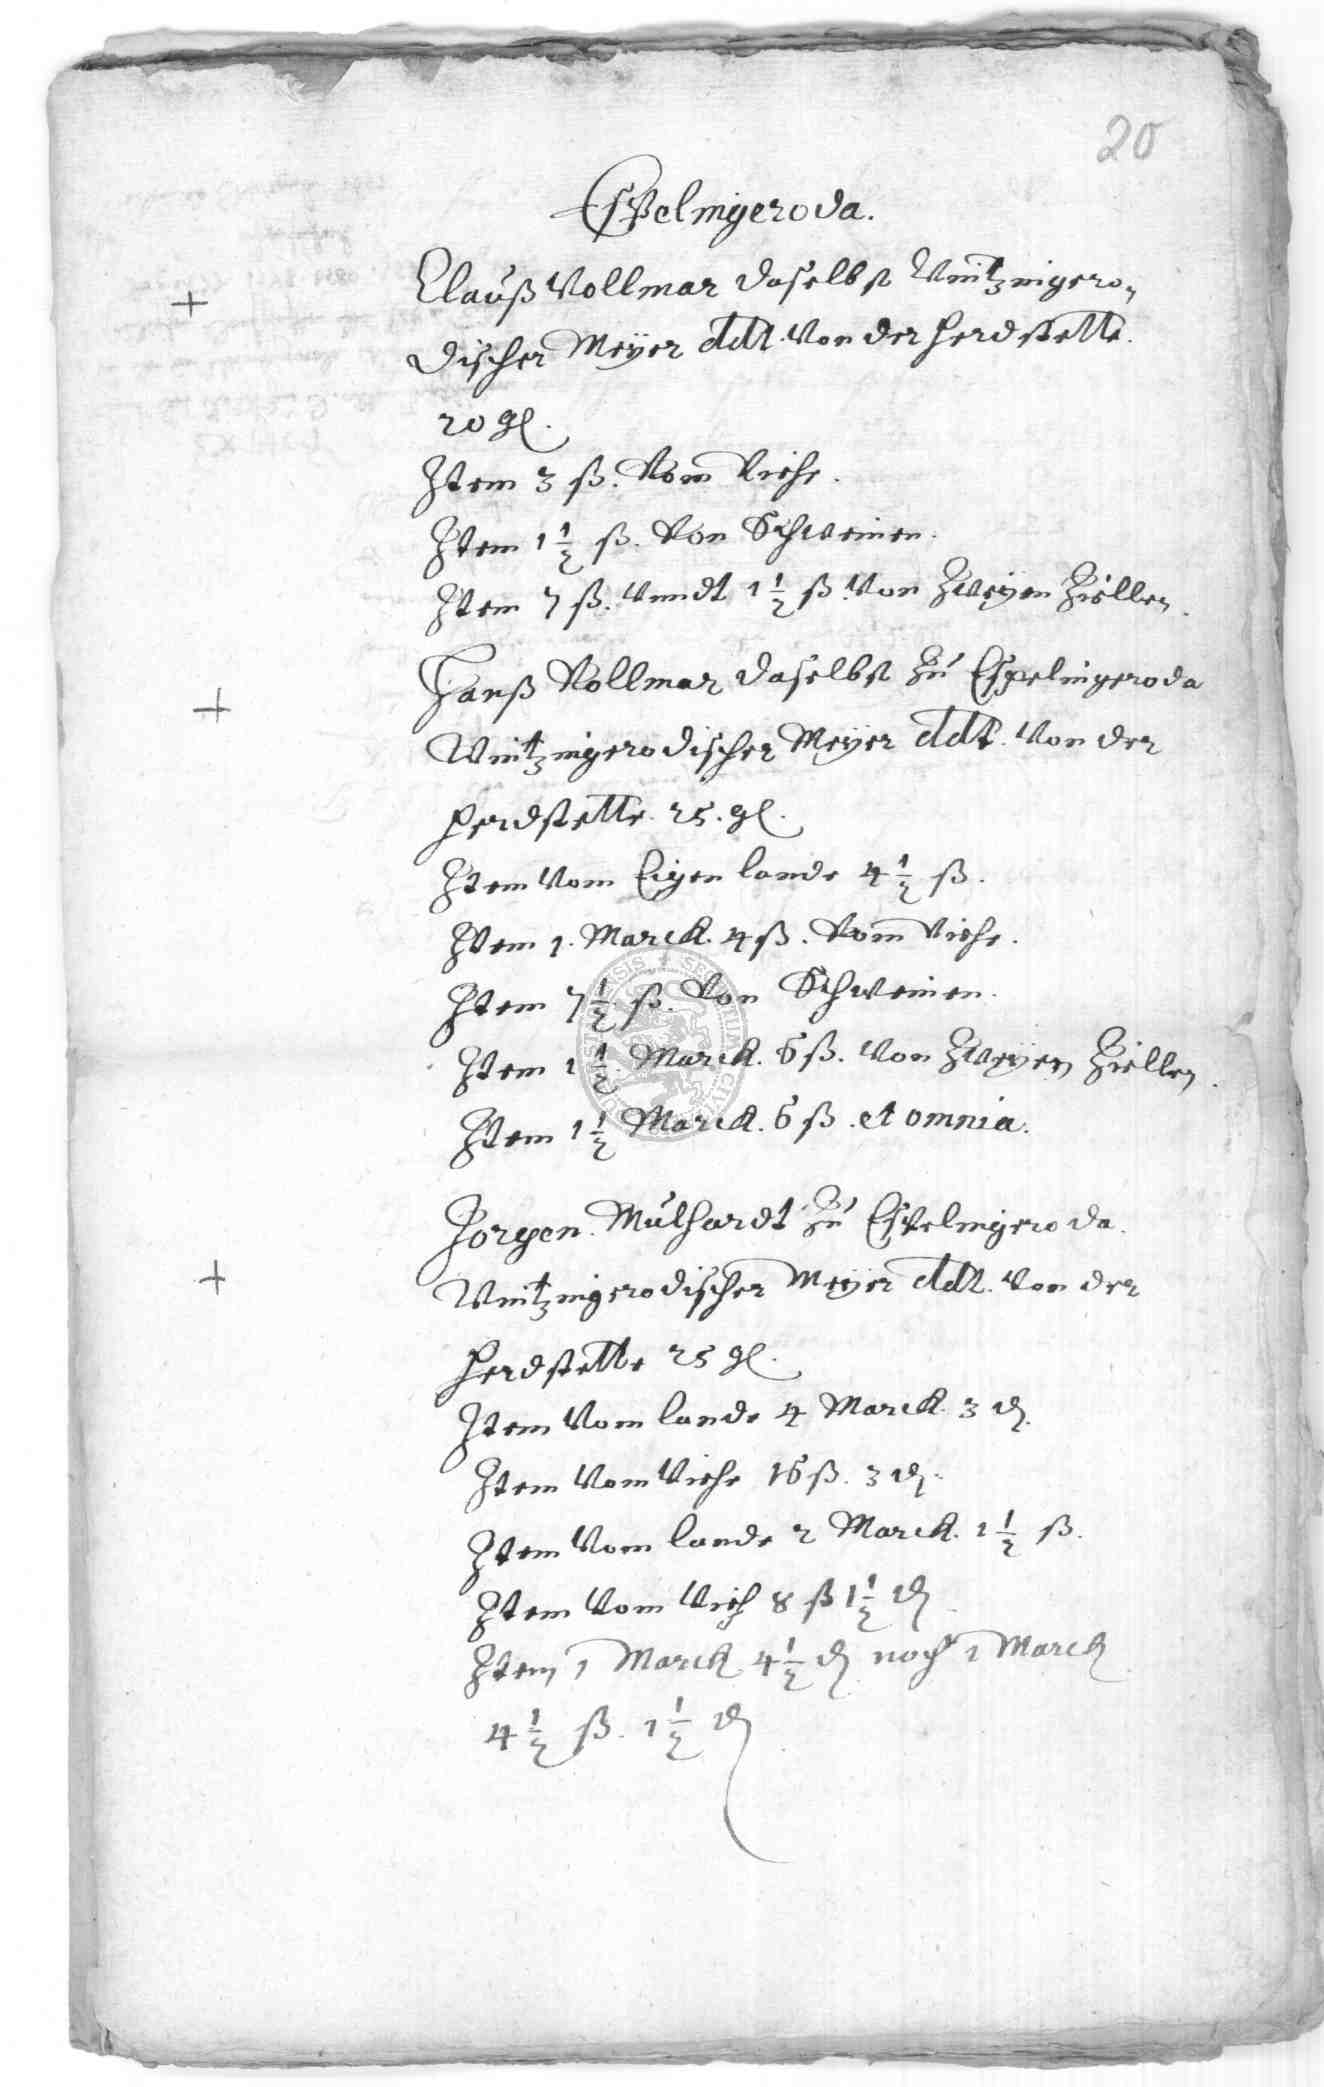 20
Espelingeroda.
Clauß Vollmar daselbst Wintzingero„
discher Meyer ddt. Von der Herdstette.
20 gl.
Item 3 ß. Vom Viehe.
Item 1 1/2 ß. Von Schweinen.
Item 7 ß. Vnndt 1 1/2 ß Von Zweyen Ziellen.
Hanß Vollmar daselbst Zu Espelingeroda
Wintzingerodischer Meyer ddt. Von der
Herdstette. 25. gl.
Item Vom Eigen lande 4 1/2 ß.
Item 1. Marck. 4 ß. Vom Viehe.
Item 7 1/2 ß. Von Schweinen.
Item 1 1/2. Marck. 6 ß. Von Zweyen Ziellen.
Item 1 1/2 Marck. 6 ß. et omnia.
Jorgen. Mülhardt Zu Espelingeroda.
Wintzingerodischer Meyer ddt. Von der
Herdstette 25 gl.
Item Vom lande 4 Marck. 3 ₰.
Item Vom Viehe 16 ß. 3 ₰.
Item Vom lande 2 Marck. 1 1/2 ß.
Item Vom Vieh 8 ß 1 1/2 ₰
Item 1 Marck 4 1/2 ₰ noch 1 Marck
4 1/2 ß. 1 1/2 ₰